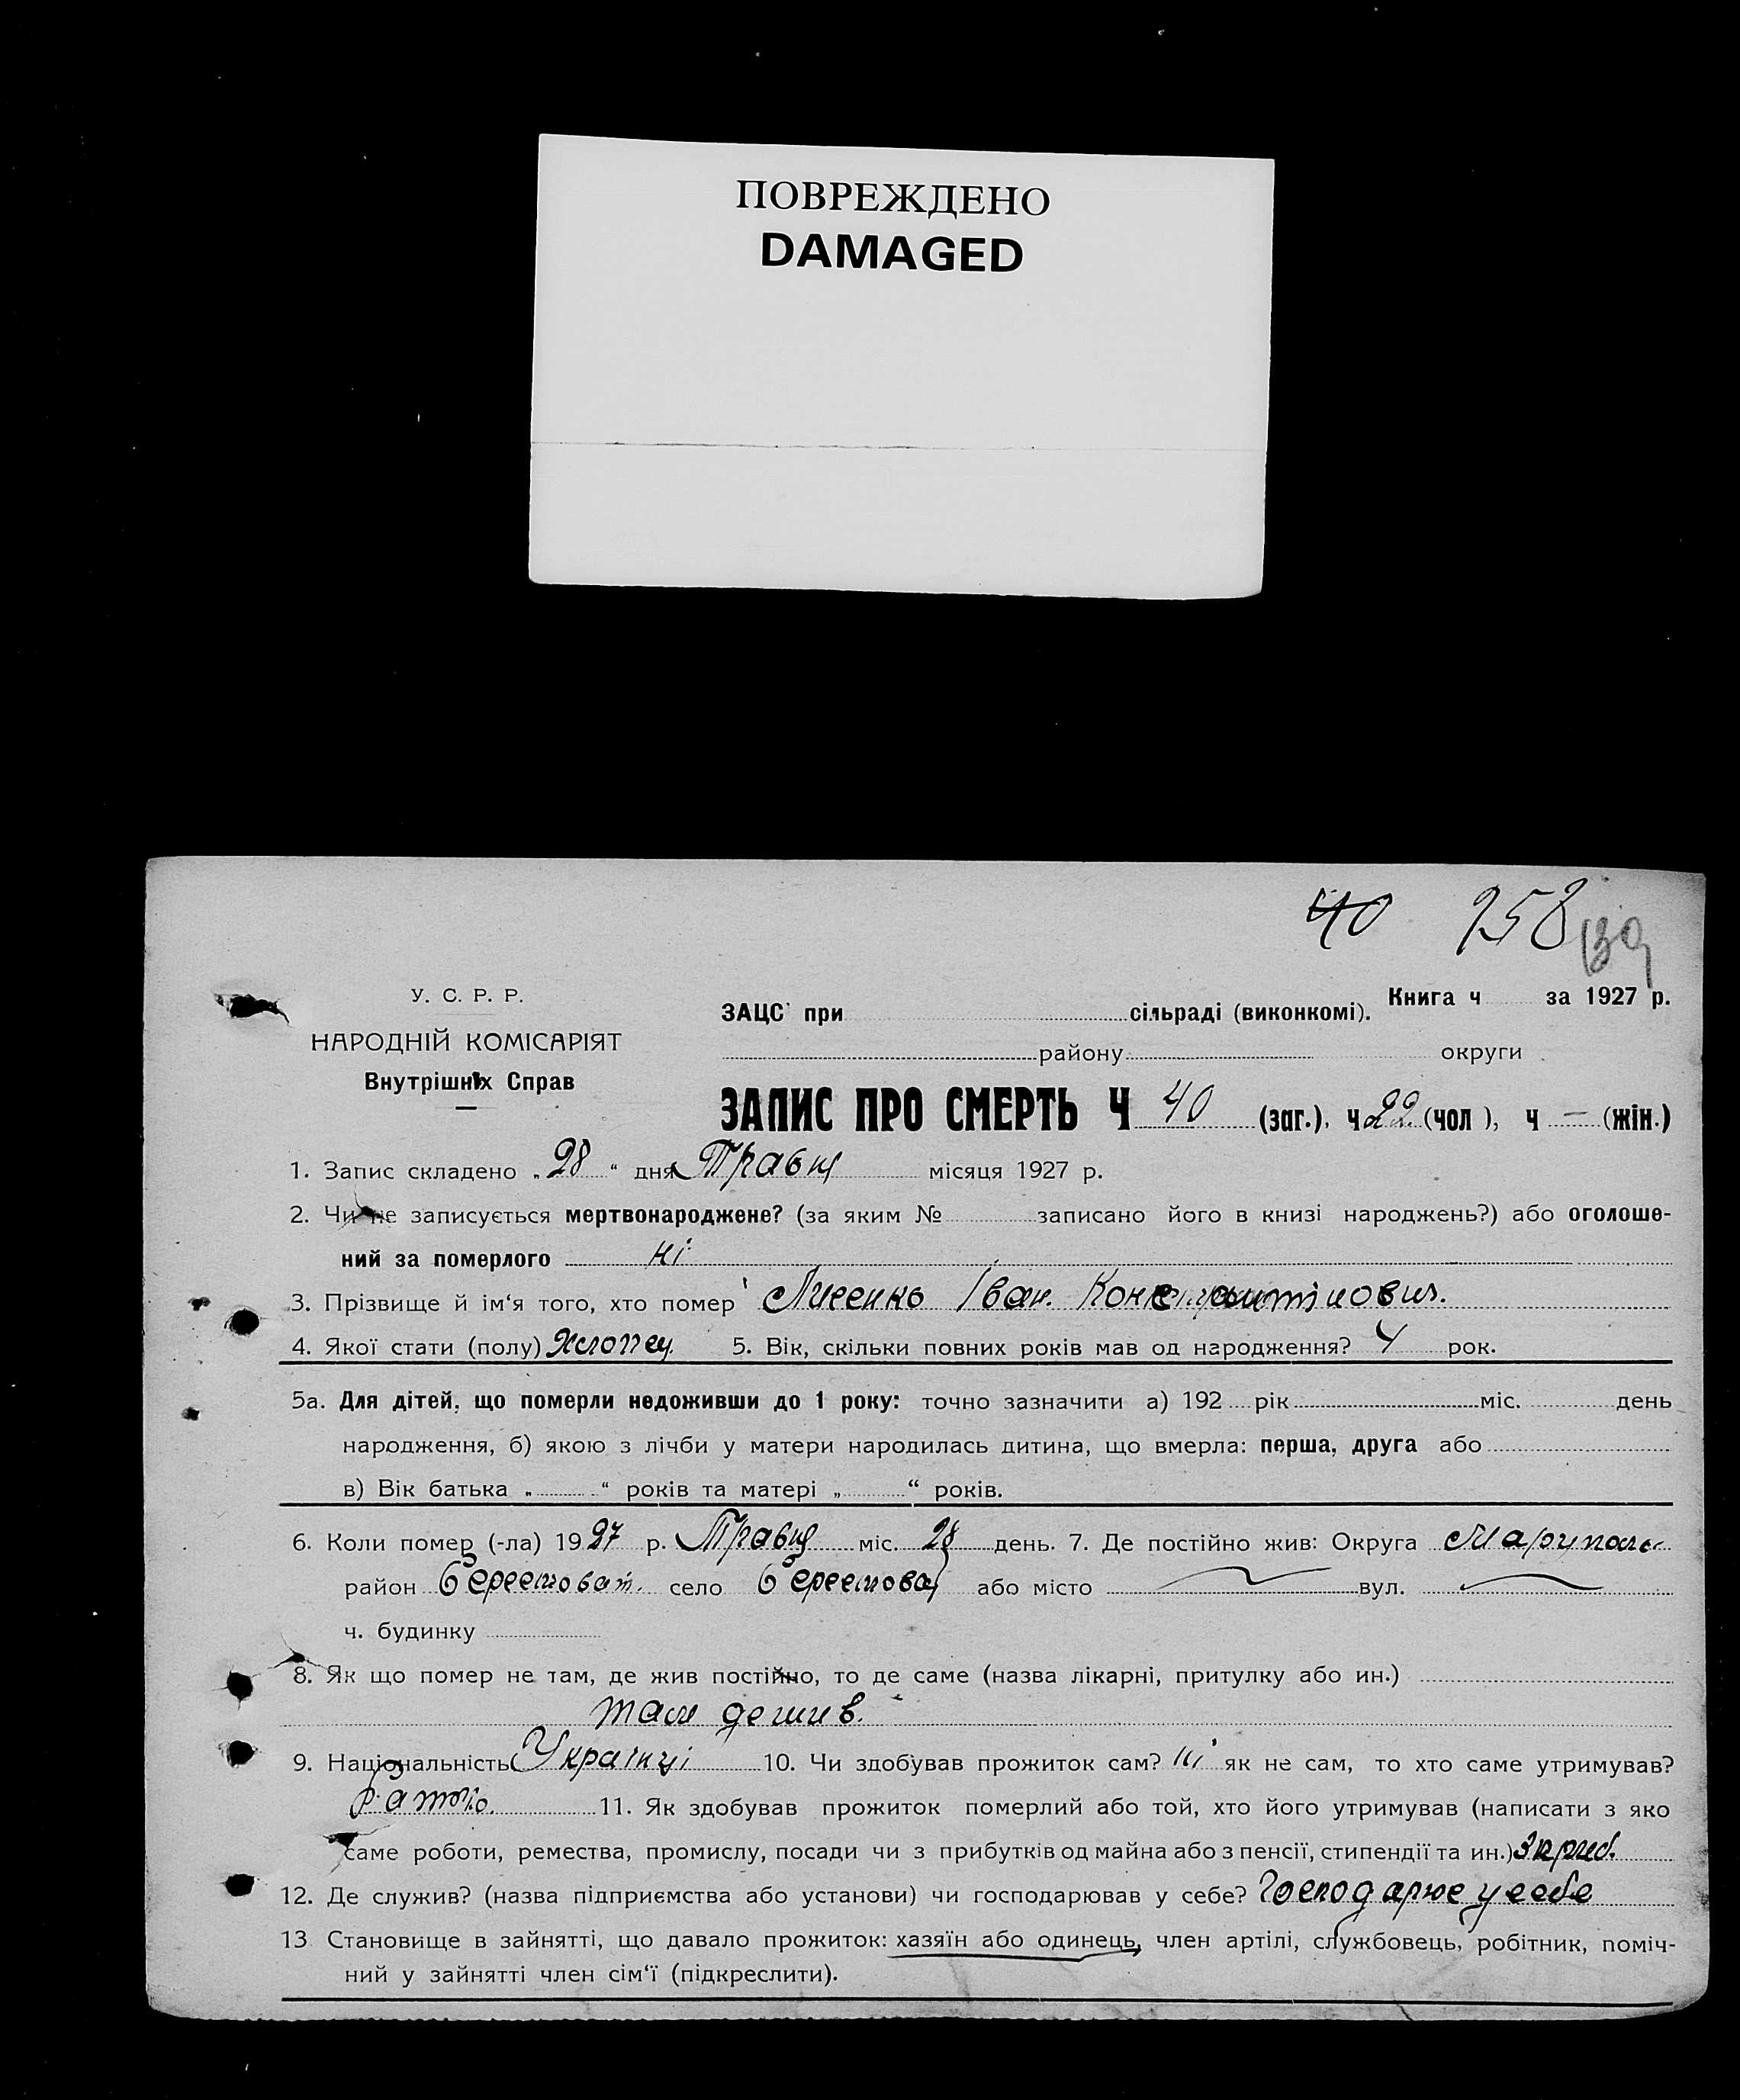 ПОВРЕЖДЕНО
DAMAGED
40 258 139
У. С. Р. Р.
НАРОДНІЙ КОМІСАРІЯТ
Внутрішніх Справ
Книга ч за 1927 р.
ЗАЦС при сільраді (виконкомі).
району округи
ЗАПИС ПРО СМЕРТЬ Ч 40 (заг.), ч 22 (чол), ч — (жін.)
1. Запис складено „28“ дня Травня місяця 1927 р.
2. Чи не записується мертвонароджене? (за яким № записано його в книзі народжень?) або оголоше-
ний за померлого ні
3. Прізвище й ім‘я того, хто помер Лисенко Іван Константінович.
4. Якої стати (полу) Хлопец. 5. Вік, скільки повних років мав од народження? 4 рок.
5а. Для дітей, що померли недоживши до 1 року: точно зазначити а) 192 рік міс. день
народження, б) якою з лічби у матери народилась дитина, що вмерла: перша, друга або
в) Вік батька „ “ років та матері „ “ років.
6. Коли помер (-ла) 1927 р. Травня міс. 28 день. 7. Де постійно жив: Округа Маріупольс
район Берестоват. село Берестова або місто вул.
ч. будинку
8. Як що помер не там, де жив постійно, то де саме (назва лікарні, притулку або ин.)
там де жив.
9. Національність Українці 10. Чи здобував прожиток сам? ні як не сам, то хто саме утримував?
батько. 11. Як здобував прожиток померлий або той, хто його утримував (написати з яко
саме роботи, ремества, промислу, посади чи з прибутків од майна або з пенсії, стипендії та ин.)
12. Де служив? (назва підприємства або установи) чи господарював у себе? Господарює у себе
13 Становище в зайнятті, що давало прожиток: хазяїн або одинець, член артілі, службовець, робітник, поміч-
ний у зайнятті член сім‘ї (підкреслити).